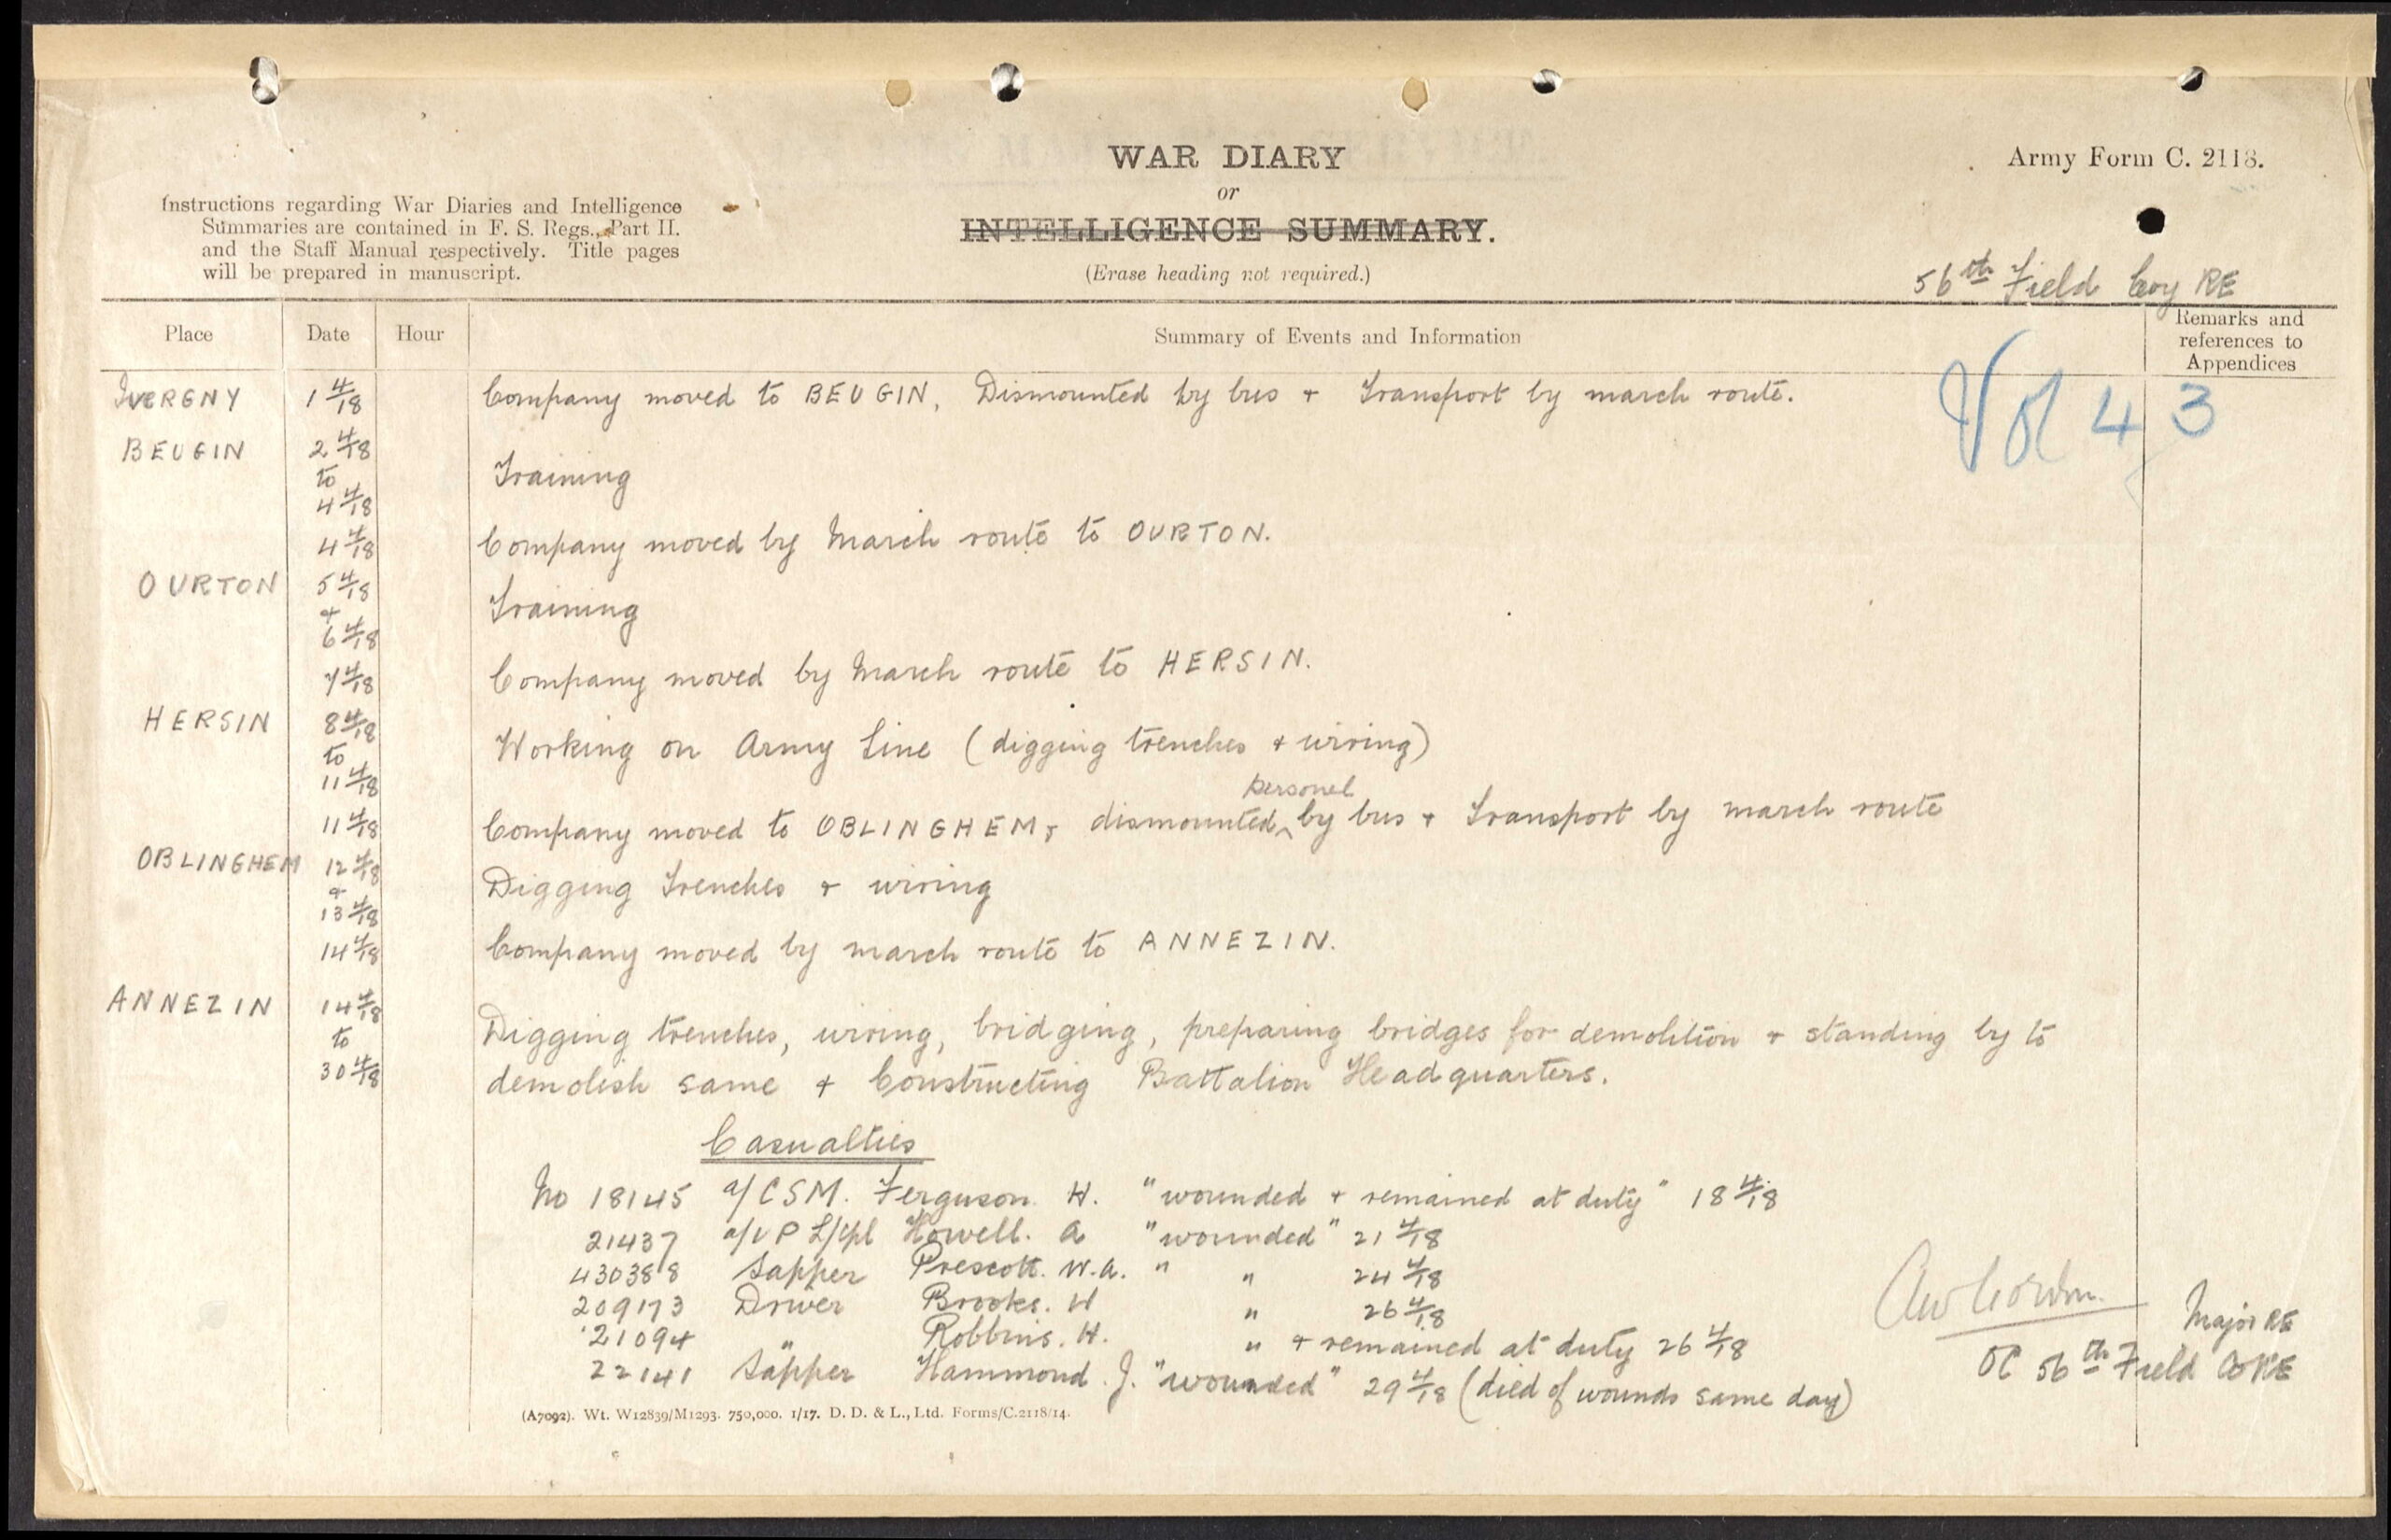 WAR DIARY
or
INTELLIGENCE SUMMARY.
(Erase heading not required.)
Army Form C. 2118.
Instructions regarding War Diaries and Intelligence
Summaries are contained in F. S. Regs., Part II.
and the Staff Manual respectively. Title pages
will be prepared in manuscript.
56th Field Coy RE
Place Date Hour Summary of Events and Information Remarks and
references to
Appendices
Vol 43
IVERGNY 1 4/18 Company moved to BEUGIN, Dismounted by bus + Transport by march route.
BEUGIN 2 4/18
to Training
4 4/18
4 4/18 Company moved by March route to OURTON.
OURTON 5 4/18
+ Training
6 4/18
7 4/18 Company moved by March route to HERSIN.
HERSIN 8 4/18
to Working on Army Line (digging trenches + wiring)
11 4/18
11 4/18 Company moved to OBLINGHEM, dismounted personel by bus + Transport by march route
OBLINGHEM 12 4/18 Digging Trenches + wiring
+
13 4/18
14 4/18 Company moved by march route to ANNEZIN.
ANNEZIN 14 4/18
to Digging trenches, wiring, bridging, preparing bridges for demolition + standing by to
30 4/18 demolish same + Constructing Battalion Headquarters.
Casualties
No 18145 a/CSM. Ferguson. H. "wounded + remained at duty" 18 4/18
21437 a/ L/Cpl Howell. A "wounded" 21 4/18
430388 Sapper Prescott. W.A. " " 24 4/18
209173 Driver Brooks. H " 26 4/18
21094 " Robbins. H. " + remained at duty 26 4/18
22141 Sapper Hammond. J. "wounded" 29 4/18 (died of wounds same day)
Major RE
OC 56th Field Co RE
(A7092). Wt. W12839/M1293. 750,000. 1/17. D. D. & L., Ltd. Forms/C.2118/14.